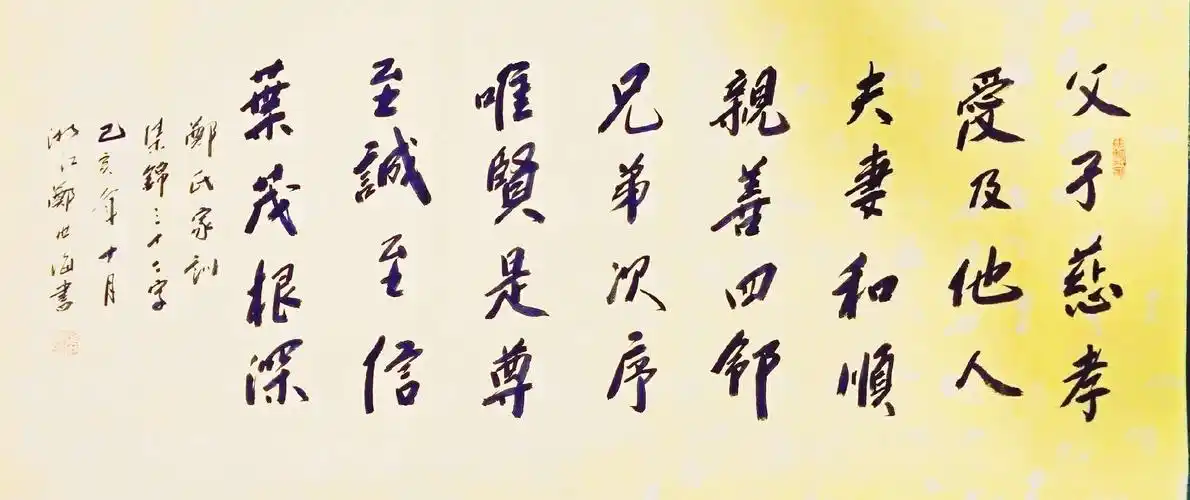 父子慈孝
愛及他人
夫妻和順
親善四鄰
兄弟次序
唯賢是尊
至誠至信
葉茂根深
鄭氏家訓
集錦三十二字
己亥年十月
浙江鄭世海書